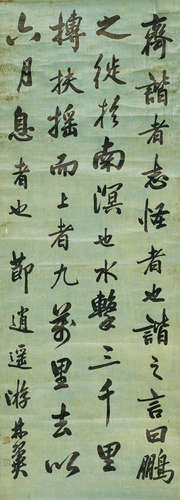 齊諧者志怪者也諧之言曰鵬
之徙於南溟也水擊三千里
摶扶搖而上者九萬里去以
六月息者也 節逍遙游 林翼